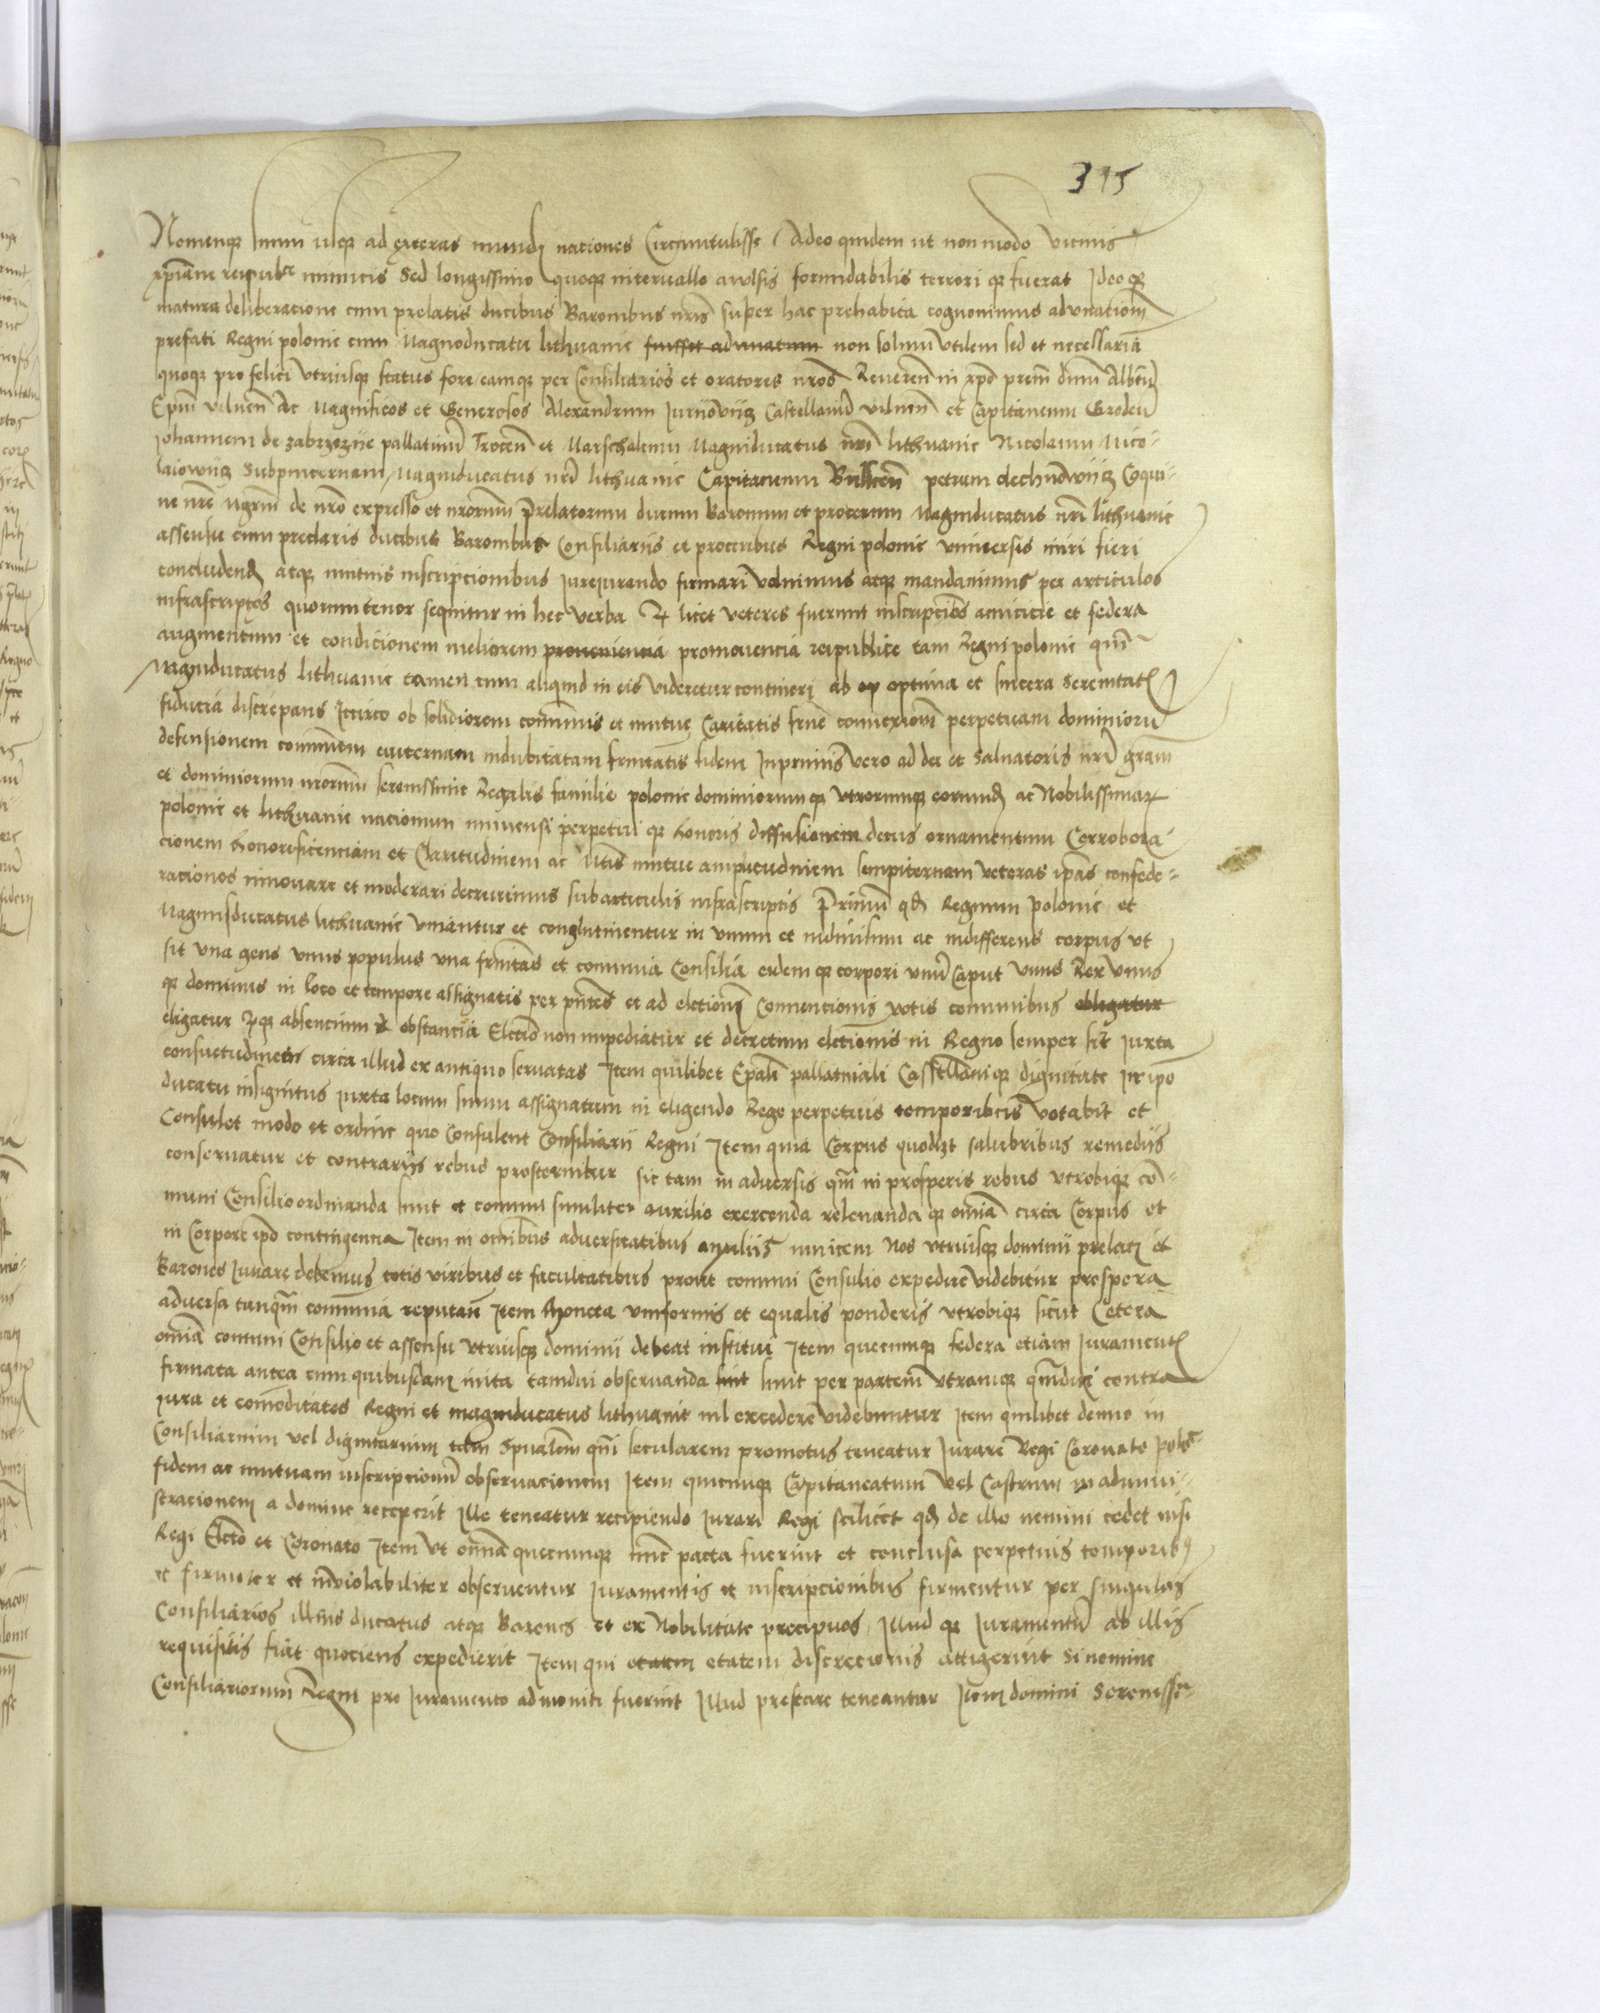 315
Nomenqз suum usqз ad exteras mundi naciones Circumtulisse Adeo quidem ut non modo vicinis
xpiane reipublce inimicis Sed longissimo quoqз intervallo avulsis formidabilis terrori qз fuerat Ideoqз
matura deliberacione cum prelatis ducibus Baronibus nris super hac prehabita cognovimus adunationem
prefati Regni polonie cum Magnoducatu lithuanie fuisset adunatum non solum utilem sed et necessariam
quoqз pro felici utriusqз status fore eamqз per Consiliarios et oratores nros Reveren in xpo prem dnm Albtum
Epm vilnen Ac Magnificos et Generosos Alexandrum Jurijowijcz Castellanum vilnen et Capitaneum Groden
Johannem de zabrzezije pallatinum Trocen et Marschalcum Magniducatus nri lithuanie Nicolaum Nico-
laiowijcz Subpincernam Magniducatus nri lithuanie Capitaneum Bellcen petrum olechnowijcz Coqui-
ne nre mgrum de nro expresso et nrorum Prelatorum ducum Baronum et procerum Magniducatus nri lithuanie
assensu cum preclaris ducibus Baronibus Consiliariis et proceribus Regni polonie universis iniri fieri
concludend atqз mutuis inscripcionibus iureiurando firmari voluimus atqз mandavimus per articulos
infrascriptos quorum tenor sequitur in hec verba Et licet veteres fuerunt inscripcioes amicicie et federa
augmentum et condicionem meliorem proveniencia promovencia reipublice tam Regni polonie qm
Magniducatus lithuanie tamen cum aliquid in eis videretur contineri ab op optima et sincera serenitatis
fiducia discrepans Icirco ob solidiorem communis et mutue Caritatis frne connexionem perpetuam dominioru
defensionem communem eviternam indubitatam frnitatis fidem Inprimis vero ad dei et Salvatoris nri gram
et dominiorum nrorum serenissimie Regalis familie polonie dominiorum qз utrorumqз eorund ac Nobilissimar
polonie et lithuanie nacionum immensi perpetui qз honoris diffusionem decus ornamentum Corrobora-
cionem honorificenciam et Claritudinem ac utilis mutue amplitudinem sempiternam veteras ipas confede-
raciones innovare et moderari decrevimus sub articulis infrascriptis Primum qd Regnum Polonie et
Magnusducatus lithuanie uniantur et conglutinentur in unum et indivisum ac indifferens corpus ut
sit una gens unus populus una frnitas et communia Consilia eidem qз corpori unum Caput unus Rex unus
qз dominus in loco et tempore assignatis per pntes et ad electionem Convencionis votis communibus obligatur
eligatur qз absencium obstancia Electio non impediatur et decretum electionis in Regno semper sit iuxta
consuetudinem circa illud ex antiquo servatas Item quilibet Epali pallatinali Castellaniqз dignitate In ipo
ducatu insignitus iuxta locum suum assignatum in eligendo Rege perpetuis temporibus votabit et
Consulet modo et ordine quo Consulent Consiliarii Regni Item quia Corpus quodlzt salubribus remediis
conservatur et contrariis rebus prosternitur sic tam in adversis qm in prosperis rebus utrobiqз com-
muni Consilio ordinanda sunt et communi similiter auxilio exercenda relevanda qз omnia circa Corpus et
in Corpore ipo contingencia Item in omnibus adversitatibus auxiliis invicem Nos utriusqз dominii prelati et
Barones Iuvare debemus totis viribus et facultatibus prout communi Consulio expedire videbitur prospera
adversa tanqm communia reputan Item Moneta uniformis et equalis ponderis utrobiqз sicut Cetera
omnia communi Consilio et assensu utriusqз dominii debeat institui Item quecumqз federa etiam iuramentis
firmata antea cum quibusdam inita tamdiu observanda sint sunt per partem utramqз qmdiu contra
Iura et comoditates Regni et magniducatus lithuanie nil excedere videbuntur Item quilibet denuo in
Consiliarium vel dignitarium tam Spualem qm secularem promotus teneatur Iurare Regi Coronato Polo
fidem ac mutuam inscripcionum observacionem Item quicumqз Capitaneatum vel Castrum in admini-
stracionem a domino receperit Ille teneatur recipiendo Iurare Regi scilicet qd de illo nemini cedet nisi
Regi Electo et Coronato Item ut omnia quecumqз nunc pacta fuerint et conclusa perpetuis temporibз
et firmiter et inviolabiliter observentur iuramentis et inscripcionibus firmentur per singulos
Consiliarios illius ducatus atqз Barones et ex Nobilitate precipuos Illud qз iuramentum ab illis
requisitis fiat quociens expedierit Item qui etatem etatem discrecionis attigerint si nomine
Consiliariorum Regni pro iuramento admoniti fuerint Illud prestare teneantur Item domini Serenisse